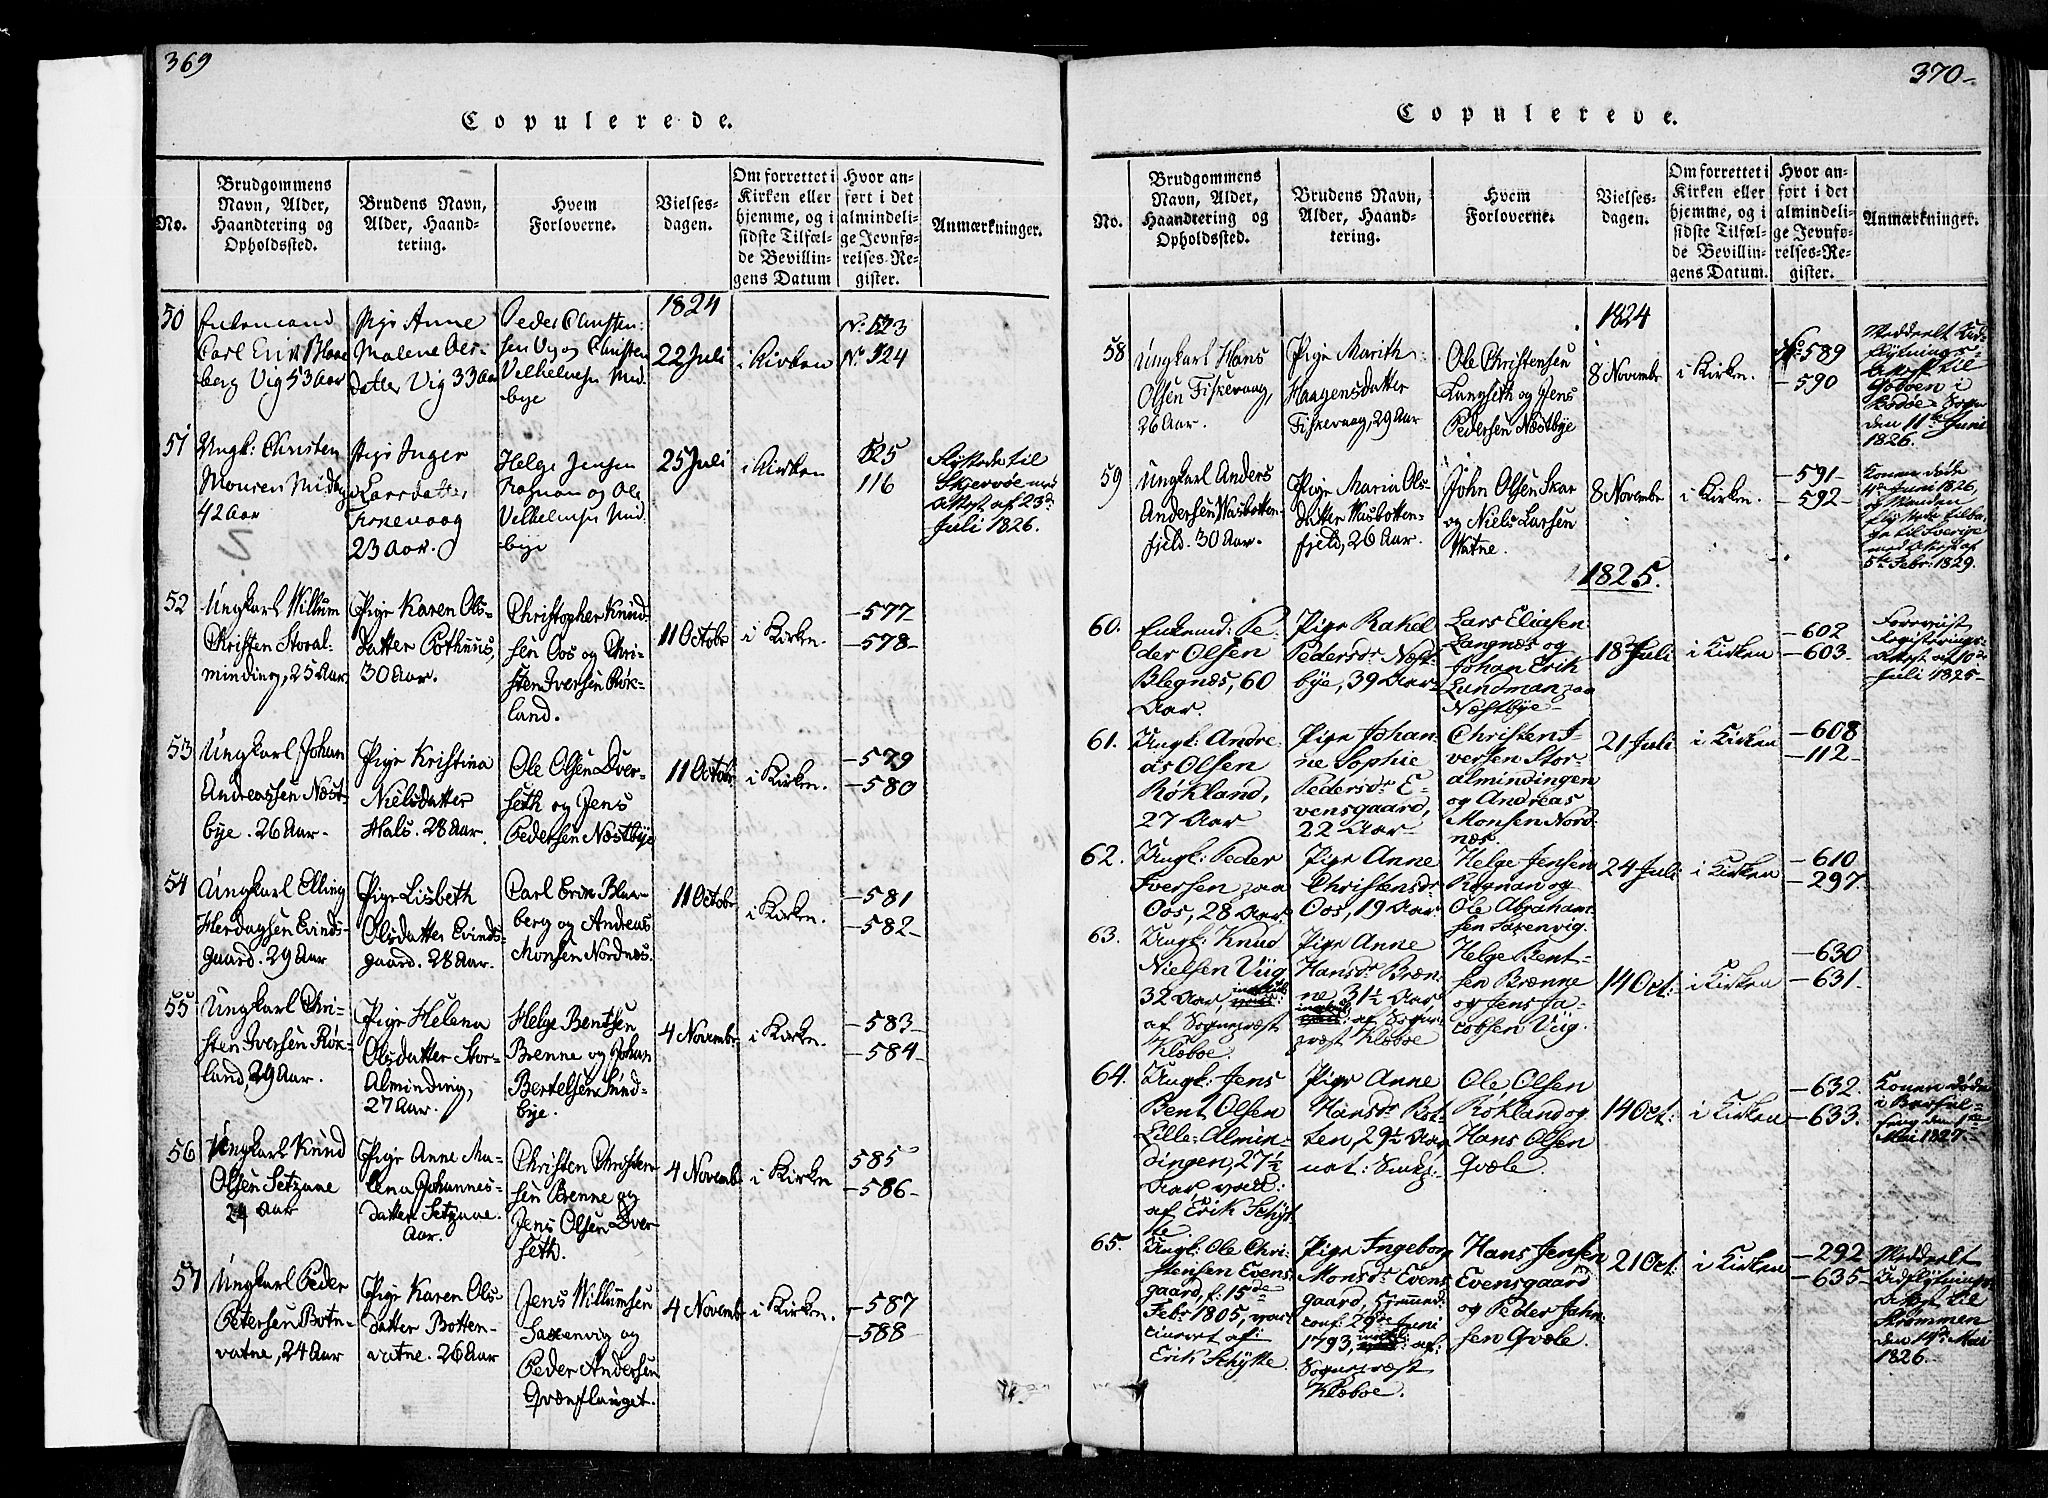 369
Copulerede.
No.
Brudgommens
Navn, Alder,
Haandtering og
Opholdssted.
Brudens Navn,
Alder, Haand-
tering.
Hvem
Forloverne.
Vielses-
dagen.
Om forrettet i
Kirken eller
hjemme, og i
sidste Tilfæl-
de Bevillin-
gens Datum
Hvor an-
ført i det
almindeli-
ge Jevnfø-
relses-Re-
gister.
Anmærkninger.
1824
50
Enkemand
Carl Erik Blaae
berg Vig 53 Aar
Pige Anne
Malene Ols-
datter Vig 33 Aar
Peder Christen-
sen Vig og Christen
Vilhelmsen Mid-
bye
22 Juli
i Kirken
No. 123
No. 124
51
Ungk: Christen
Monsen
42 Aar
Pige Inger
Larsdatter
23 Aar.
Helge Jensen
Rognan og Ole
Vilhelmsen Mid-
bye
25 Juli
i Kirken
125
116
Flyttede til
Skjervøe med
Attest af 23de
Juli 1826.
52
Ungkarl Willum
Christen Storal-
minding, 25 Aar
Pige Karen Ols-
datter Pothuus,
30 Aar.
Christopher Knud-
sen Oos og Chri-
sten Iversen Røk-
land.
11 Octobr
i Kirken.
-577-
-578-
53
Ungkarl Johan
Andreassen Næst-
bye. 26 Aar-
Pige Kristina
Nielsdatter
Hals. 28 Aar.
Ole Olsen Dver-
seth og Jens
Pedersen Næstbye
11 Octobr
i Kirken.
-579
-580
54
Ungkarl Elling
Herdagsen Evinds-
gaard. 29 Aar
Pige Lisbeth
Olsdatter Evinds-
gaard. 28 Aar.
Carl Erik Blaa-
berg og Andreas
Monsen Nordnæs.
11 Octobr
i Kirken.
-581
-582-
55
Ungkarl Chri-
sten Iversen Røk-
land, 29 Aar.
Pige Helena
Olsdatter Stor-
Alminding,
27 Aar.
Helge Bentsen
Brenne og Johan
Bertelsen Sund-
bye.
4 Novembr
i Kirken.
-583-
-584-
56
Ungkarl Knud
Olsen Setzaae
24 Aar
Pige Anne Ma-
lena Johannes-
datter Setzaae.
Aar.
Christen Christen-
sen Brenne og
Jens Olsen Dver-
seth.
4 Novemb
i Kirken
585
-586-
57
Ungkarl Peder
Petersen Botn-
vatne, 24 Aar
Pige Karen Ols-
datter Botten-
vatne. 26 Aar
Jens Willumsen
Saxenvig og
Peder Andersen
Qvænflauget.
4 Novembr
i Kirken.
-587
-588-
370-
Copulerede.
No.
Brudgommens
Navn, Alder,
Haandtering og
Opholdssted.
Brudens Navn,
Alder, Haand-
tering.
Hvem
Forloverne.
Vielses-
dagen.
Om forrettet i
Kirken eller
hjemme, og i
sidste Tilfæl-
de Bevillin-
gens Datum.
Hvor an-
ført i det
almindeli-
ge Jevnfø-
relses-Re-
gister.
Anmærkninger.
1824
58
Ungkarl Hans
Olsen Fiskevaag,
26 Aar.
Pige Marith
Haagensdatter
Fiskevaag, 29 Aar
Ole Christensen
Langseth og Jens
Pedersen Næstbye
8 Novembr
i Kirken.
No. 589
-590
Meddeelt Ud-
flytnings-
Attest til
Bodøe Sogn
den 11te Juni
1826.
59
Ungkarl Anders
Andersen Wasbotten-
fjeld. 30 Aar.
Pige Maria Ols-
datter Wasbotten-
fjeld, 26 Aar.
John Olsen Skar
og Niels Larsen
Watne.
8 Novembr
i Kirken.
-591-
-592-
Konen døde
4de Juni 1826,
og Manden
flyttede tilba-
ge til Sverige
med Attest af
5te Febr: 1829.
1825.
60.
Enkemd: Pe-
der Olsen
Blegnæs, 60
Aar.
Pige Rakel
Pedersdr Næst-
bye, 39 Aar-
Lars Eliasen
Langnæs og
Johan Erik
Lundman paa
Næstbye-
18de Juli
i Kirken
-602
-603-
Foreviist
Registerings-
Attest af 10de
Juli 1825-
61.
Ungk: Andre-
as Olsen
Røkland,
27 Aar
Pige Johan-
ne Sophie
Pedersdr E-
vensgaard,
22 Aar
Christen I-
versen Stor-
almindingen
og Andreas
Monsen Nord-
næs.
21 Juli
i Kirken
-608
-112-
62.
Ungk: Peder
Iversen paa
Oos, 28 Aar.
Pige Anne
Christensdr
Oos, 19 Aar
Helge Jensen
Rognan og
Ole Abraham-
sen Saxenvig.
24 Juli
i Kirken
-610
-297-
63.
Ungk: Knud
Nielsen Viig
32 Aar,
af Sognepræst
Klæboe.
Pige Anne
Hansdr Bræn-
ne 31½ Aar
af Sogne-
præst Klæboe
Helge Bent-
sen Brænne
og Jens Ja-
cobsen Viig.
14 Oct:
i Kirken
-630
-631-
64.
Ungk: Jens
Bent Olsen
Lille-Almin-
dingen, 27½
Aar vacc:
af Erik Schyt-
te.
Pige Anne
Hansdr Bot-
ten, 29½ Aar
nat: Smkp:
Ole Olsen
Røkland og
Hans Olsen
Qvæle.
14 Oct:
i Kirken
-632.
-633.
Konen døde
i Barsel-
seng den 1ste
Mai 1827.
65.
Ungk: Ole Chri-
stensen Evens-
gaard, f: 15de
Febr 1805, vac-
cineret af:
Erik Schytte
Pige Ingeborg
Monsdr Evens-
gaard,
conf: 29de Juni
1793, af:
Sognepræst
Klæboe.
Hans Jensen
Evensgaard
og Peder John-
sen Qvæle.
21 Oct:
i Kirken
-292
-635-
Meddeelt
Udflytnings-
Attest til
Strømmen
den 14de Mai
1826.